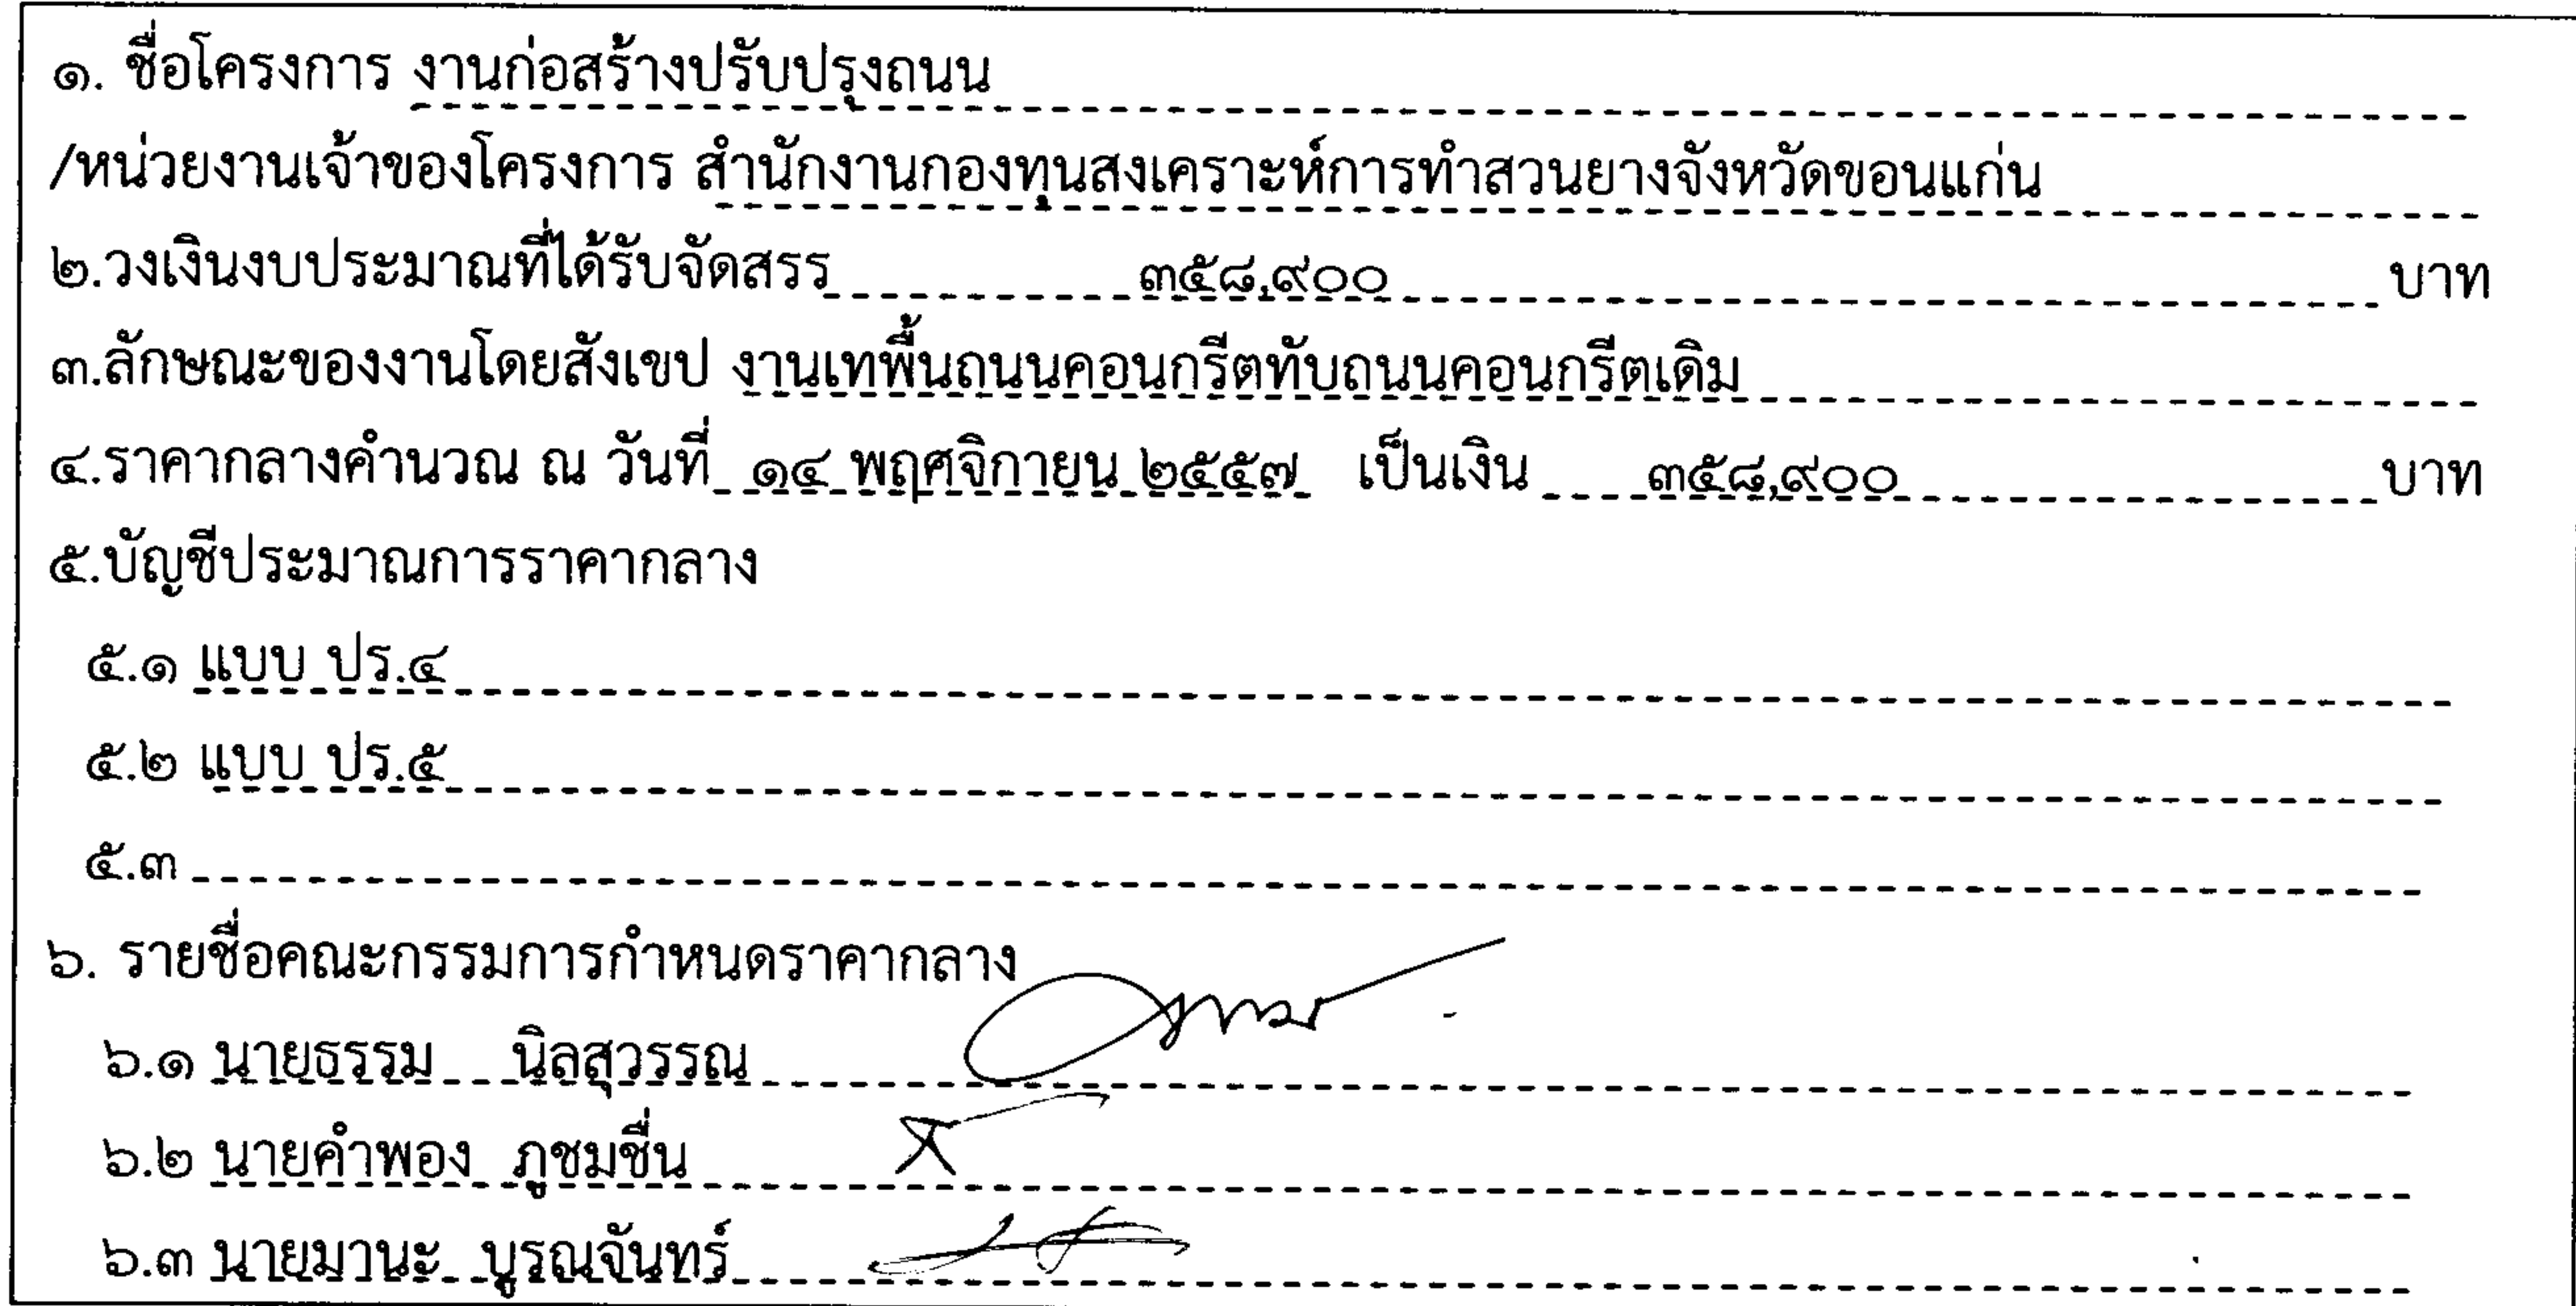 ๑. ชื่อโครงการ งานก่อสร้างปรับปรุงถนน
/หน่วยงานเจ้าของโครงการ สำนักงานกองทุนสงเคราะห์การทำสวนยางจังหวัดขอนแก่น
๒.วงเงินงบประมาณที่ได้รับจัดสรร ๓๕๘,๙๐๐ บาท
๓.ลักษณะของงานโดยสังเขป งานเทพื้นถนนคอนกรีตทับถนนคอนกรีตเดิม
๔.ราคากลางคำนวณ ณ วันที่ ๑๔ พฤศจิกายน ๒๕๕๗ เป็นเงิน ๓๕๘,๙๐๐ บาท
๕.บัญชีประมาณการราคากลาง
๕.๑ แบบ ปร.๔
๕.๒ แบบ ปร.๕
๕.๓
๖. รายชื่อคณะกรรมการกำหนดราคากลาง
๖.๑ นายธรรม นิลสุวรรณ
๖.๒ นายคำพอง ภูชมชื่น
๖.๓ นายมานะ บูรณจันทร์